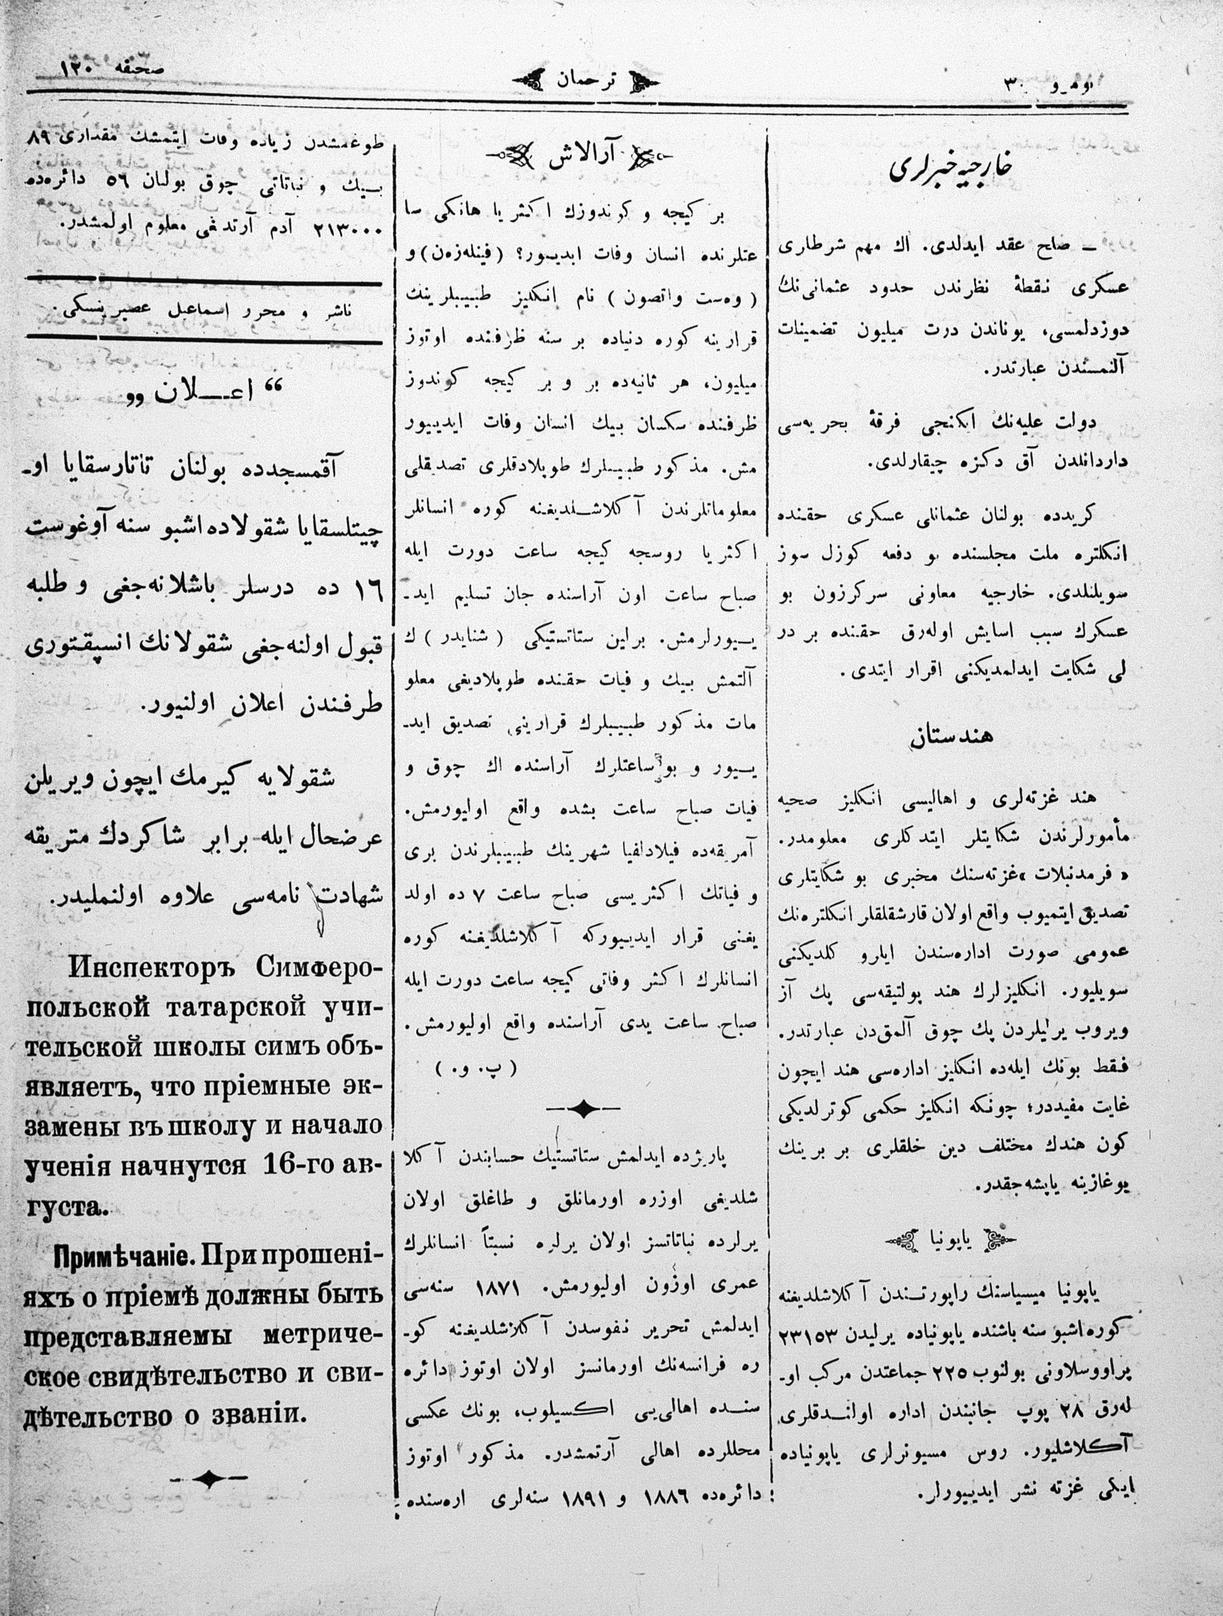 نومرو ٣٠
ترجمان
صحیفه ١٢٠
خارجیه خبرلری
ـ صلح عقد ایدلدی. اك مهم شرطاری
عسکری نقطهٔ نظرندن حدود عثمانی‌نك
دوزدلمسی، یوناندن درت میلیون تضمینات
آلنمسندن عبارتدر.
دولت علیه‌نك ایکنجی فرقهٔ بحریه‌سی
داردانلدن آق دکزه چیقارلدی.
کریدده بولنان عثمانلی عسکری حقنده
انکلتره ملت مجلسنده بو دفعه کوزل سوز
سویلنلدی. خارجیه معاونی سرکرزون بو
عسکرك سبب اسایش اوله‌رق حقنده بر در
لی شکایت ایدلمدیکنی اقرار ایتدی.
هندستان
هند غزته‌لری و اهالیسی انکلیز صحیه
مأمورلرندن شکایتلر ایتدکلری معلومدر.
«فرمدنبلات» غزته‌سنك مخبری بو شکایتلری
تصدیق ایتمیوب واقع اولان قارشقلقلر انکلتره‌نك
عمومی صورت اداره‌سندن ایلرو کلدیکنی
سویلیور. انکلیزلرك هند پولتیقه‌سی پك آز
ویروب یرلیلردن پك چوق آلمق‌دن عبارتدر.
فقط بونك ایله‌ده انکلیز اداره‌سی هند ایچون
غایت مفیددر؛ چونکه انکلیز حکمی کوترلدیکی
کون هندك مختلف دین خلقلری بر برینك
بوغازینه یاپشه‌جقدر.
یاپونیا
یاپونیا میسیاسنك راپورتندن آکلاشلدیغنه
کوره اشبو سنه باشنده یاپونیاده یرلیدن ٢٣١٥٣
پراووسلاونی بولنوب ٢٢٥ جماعتدن مرکب او۔
له‌رق ٢٨ پوپ جانبندن اداره اولندقلری
آکلاشلیور. روس مسیونرلری یاپونیاده
ایکی غزته نشر ایدییورلر.
آرالاش
بر کیجه و کوندوزك اکثریا هانکی سا
عتلرنده انسان وفات ایدییور؟ (فینله‌زه‌ن) و
(وه‌ست واتصون) نام انکلیز طبیبلرینك
قرارینه کوره دنیاده بر سنه ظرفنده اوتوز
میلیون، هر ثانیه‌ده بر و بر کیجه کوندوز
ظرفنده سکسان بیك انسان وفات ایدییور
مش. مذکور طبیبلرك طوپلادقلری تصدیقلی
معلوماتلرندن آکلاشلدیغنه کوره انسانلر
اکثریا روسجه کیجه ساعت دورت ایله
صباح ساعت اون آراسنده جان تسلیم اید۔
ییورلرمش. برلین ستاتستیکی (شنایدر) ك
آلتمش بیك وفیات حقنده طوپلادیغی معلو
مات مذکور طبیبلرك قرارینی تصدیق اید۔
ییور و بو ساعتلرك آراسنده اك چوق و
فیات صباح ساعت بشده واقع اولیورمش.
آمریقه‌ده فیلادلفیا شهرینك طبیبلرندن بری
وفیاتك اکثریسی صباح ساعت ٧ ده اولد
یغنی قرار ایدییورکه آکلاشلدیغنه کوره
انسانلرك اکثر وفاتی کیجه ساعت دورت ایله
صباح ساعت یدی آراسنده واقع اولیورمش.
(پ. و.)
پاریژده ایدلمش ستاتستیك حسابندن آکلا
شلدیغی اوزره اورمانلق و طاغلق اولان
یرلرده نباتاتسز اولان یرلره نسبتاً انسانلرك
عمری اوزون اولیورمش. ١٨٧١ سنه‌سی
ایدلمش تحریر نفوسدن آکلاشلدیغنه کو۔
ره فرانسه‌نك اورمانسز اولان اوتوز دائره
سنده اهالی‌یی اکسیلوب، بونك عکسی
محللرده اهالی آرتمشدر. مذکور اوتوز
دائره‌ده ١٨٨٦ و ١٨٩١ سنه‌لری اره‌سنده
طوغمشدن زیاده وفات ایتمشك مقداری ٨٩
بیك و نباتاتی چوق بولنان ٥٦ دائره‌ده
٢١٣٠٠٠ آدم آرتدغی معلوم اولمشدر.
ناشر و محرر اسماعیل عصبرینسکی.
“ اعــلان „
آقمسجدده بولنان تاتارسقایا او۔
چیتلسقایا شقولاده اشبو سنه آوغوست
١٦ ده درسلر باشلانه‌جغی و طلبه
قبول اولنه‌جغی شقولانك انسپقتوری
طرفندن اعلان اولنیور.
شقولایه کیرمك ایچون ویریلن
عرضحال ایله برابر شاکردك متریقه
شهادت نامه‌سی علاوه اولنملیدر.
Инспекторъ Симферо-
польской татарской учи-
тельской школы симъ объ-
являетъ, что пріемные эк-
замены въ школу и начало
ученія начнутся 16-го ав-
густа.
Примѣчаніе. При прошені-
яхъ о пріемѣ должны быть
представляемы метриче-
ское свидѣтельство и сви-
дѣтельство о званіи.